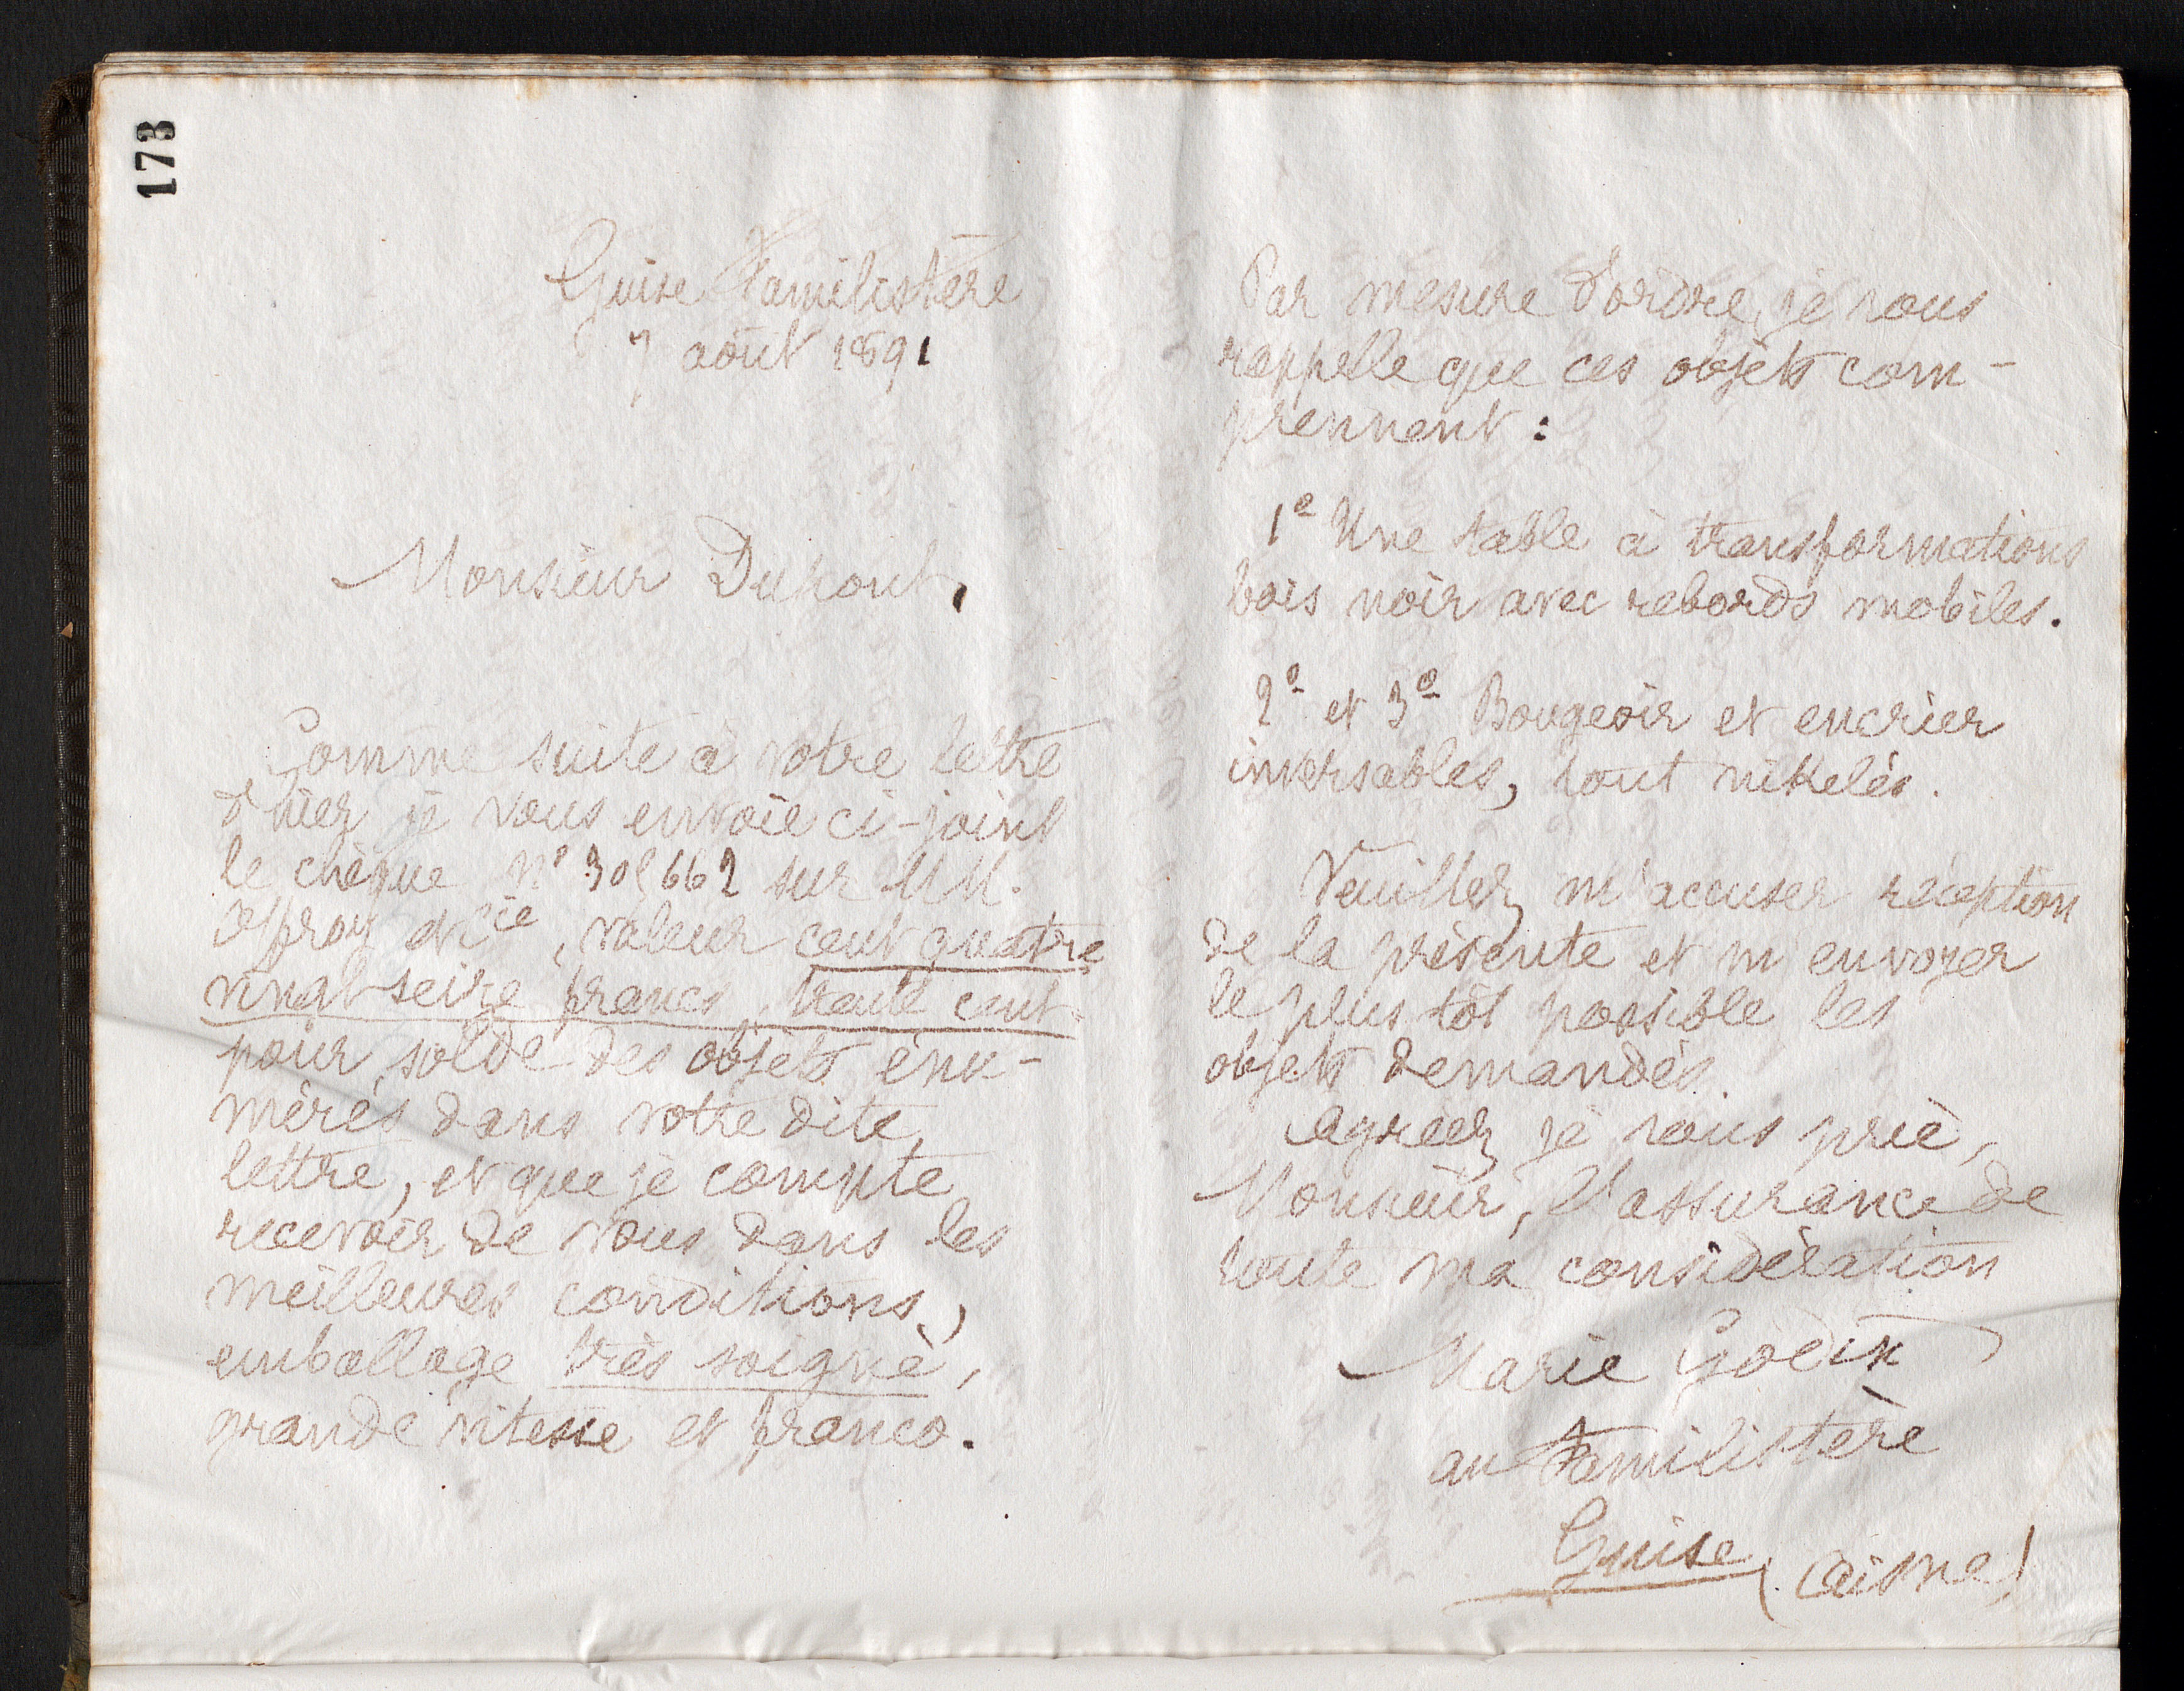 173
Guise Familistère
7 août 1891
Monsieur Dupont,
Comme suite à votre lettre
d'hier je vous envoie ci-joint
le chèque Nº 305662 sur MM.
et Cie, valeur cent quatre
vingt seize francs, trente cent.
pour solde des objets énu-
mérés dans votre dite
lettre, et que je compte
recevoir de vous dans les
meilleures conditions,
emballage très soigné,
grande vitesse et franco.
Par mesure d'ordre, je vous
rappelle que ces objets com-
prennent :
1º Une table à transformations
bois noir avec rebords mobiles.
2º et 3º Bougeoir et encrier
inversables, tout nikelés.
Veuillez m'accuser réception
de la présente et m'envoyer
le plus tôt possible les
objets demandés.
Agréez je vous prie,
Monsieur, l'assurance de
toute ma considération
Marie Godin
au Familistère
Guise (Aisne)